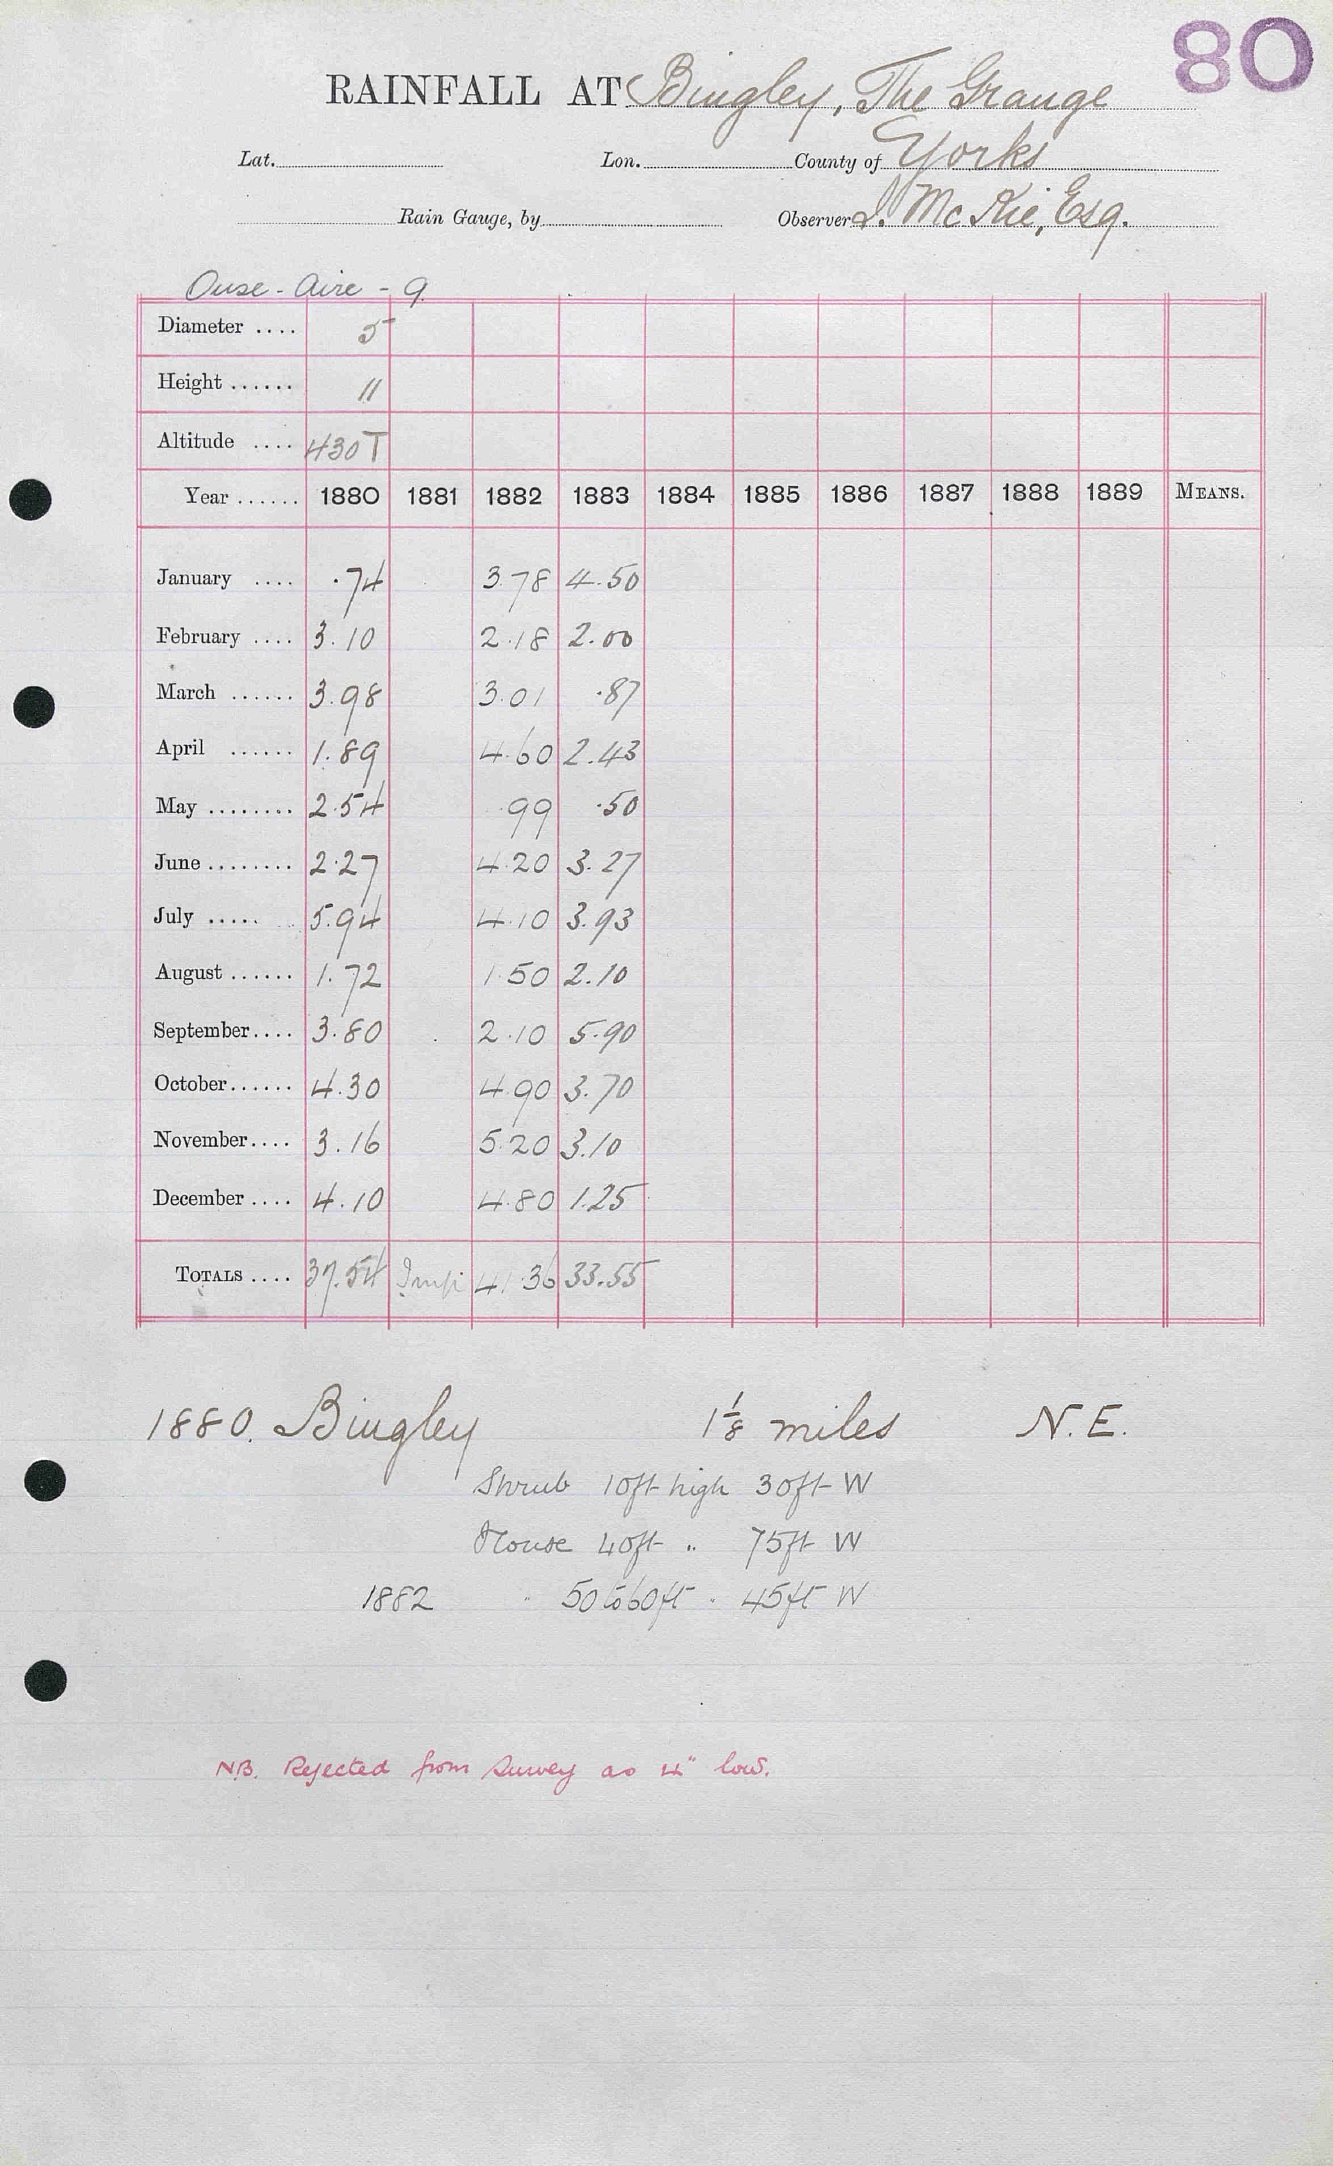 80
RAINFALL AT Bingley, The Grange
Lat. Lon. County of Yorks
Rain Gauge, by Observer J. McKie, Esq.
Ouse - Aire - 9
Diameter .... 5
Height ...... 11
Altitude .... 430 T
Year ...... 1880 1881 1882 1883 1884 1885 1886 1887 1888 1889 MEANS.
January .... .74 3.78 4.50
February .... 3.10 2.18 2.00
March ...... 3.98 3.01 .87
April ...... 1.89 4.60 2.43
May ........ 2.54 .99 .50
June ........ 2.27 4.20 3.27
July ..... 5.94 4.10 3.93
August ...... 1.72 1.50 2.10
September.... 3.80 2.10 5.90
October...... 4.30 4.90 3.70
November.... 3.16 5.20 3.10
December .... 4.10 4.80 1.25
TOTALS .... 37.54 Imp 41.36 33.55
1880. Bingley 1 1/8 miles N.E.
Shrub 10ft high 30ft W
House 40ft " 75ft W
1882 " 50 to 60ft " 45ft W
N.B. Rejected from Survey as 4" low.